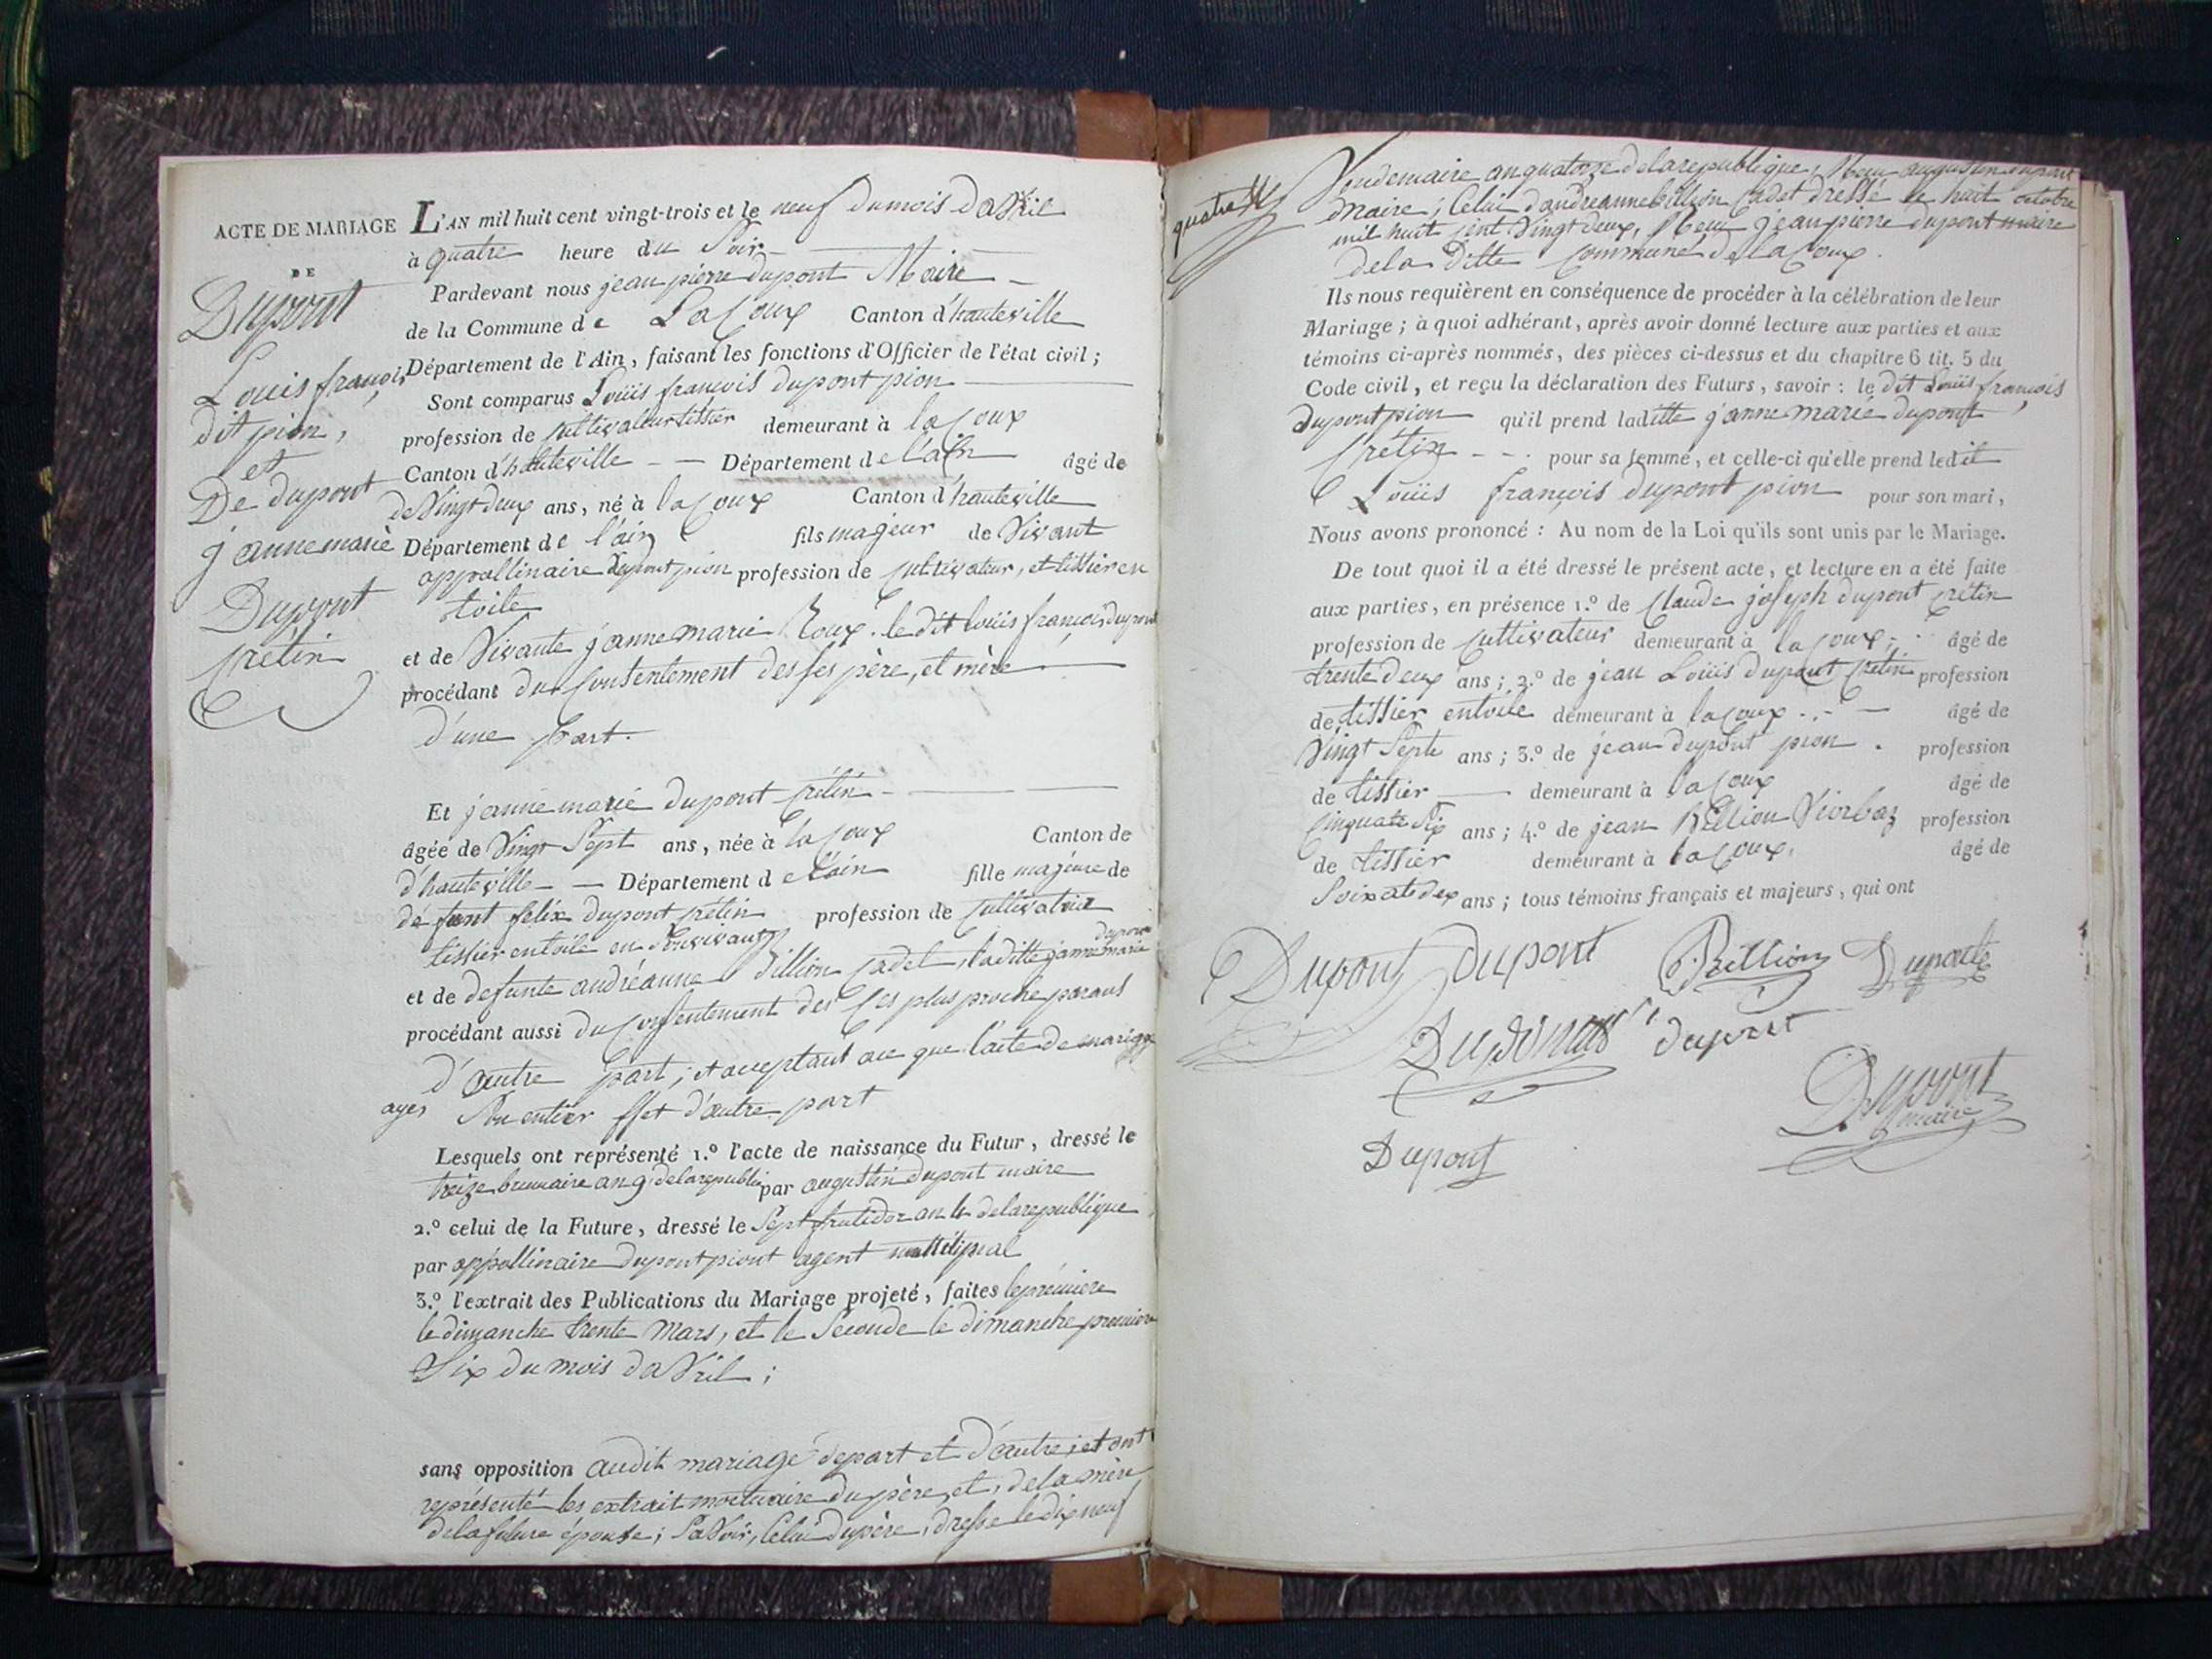 ACTE DE MARIAGE
DE
Dupont
Louis françois
dit pion,
et
De dupont
jannemarie
Dupont
crétin
L'AN mil huit cent vingt-trois et le neuf dumois davril
à quatre heure du Soir
Pardevant nous jean pierre dupont Maire
de la Commune de La Coux Canton d'hauteville
Département de l'Ain, faisant les fonctions d'Officier de l'état civil;
Sont comparus Louis francois dupont pion
profession de cultivateur tissier demeurant à la Coux
Canton d'hauteville Département de l'ain âgé de
de Vingt deux ans, né à la Coux Canton d'hauteville
Département de l'ain fils majeur de Vivant
appollinaire dupont pion profession de cultivateur, et tissier en
toile
et de Vivante jannemarie Roux. le dit louis francois dupont
procédant du Consentement des ses père, et mère
d'une part.
Et jannemarie dupont crétin
âgée de Vingt Sept ans, née à la Coux Canton de
d'hauteville Département de l'ain fille majeure de
de funt felix dupont crétin profession de cultivateur
tissier entoile en Sonvivant
dupont
et de defunte andréanne Billion cadet, laditte janne marie
procédant aussi du Consentement des Ses plus proche parans
d'autre part; et acceptant ace que lacte de mariage
ayes Son entier effet d'autre part
Lesquels ont représenté 1.º l'acte de naissance du Futur, dressé le
treize brumaire an 9 delarepubli par augustin dupont maire
2.º celui de la Future, dressé le Sept frutidor an 4 delarepublique
par appollinaire dupont piont agent
3.º l'extrait des Publications du Mariage projeté, faites lepremiere
le dimanche trente Mars, et le Seconde le dimanche premiere
Six du mois davril;
sans opposition audit mariage depart et d'autre; et ont
représenté les extrait mortuaire du père, et, dela mère
delafuture épouse; Savoir, Celui dupère, dresse le dix neuf
quatre
Vendemiaire an quatorze delarepublique, Sieur augustin dupont
maire; Celui d'andreanne billion Cadet dressé le huit octobre
mil huit cent Vingt deux, Sieur jean pierre dupont maire
dela ditte Commune de la Coux.
Ils nous requièrent en conséquence de procéder à la célébration de leur
Mariage; à quoi adhérant, après avoir donné lecture aux parties et aux
témoins ci-après nommés, des pièces ci-dessus et du chapitre 6 tit. 5 du
Code civil, et reçu la déclaration des Futurs, savoir: le dit Louis françois
dupont pion qu'il prend laditte janne marie dupont
Crétin pour sa femme, et celle-ci qu'elle prend ledit
Louis françois dupont pion pour son mari,
Nous avons prononcé: Au nom de la Loi qu'ils sont unis par le Mariage.
De tout quoi il a été dressé le présent acte, et lecture en a été faite
aux parties, en présence 1.º de Claude joseph dupont crétin
profession de cultivateur demeurant à la Coux âgé de
trente deux ans; 2.º de jean Louis dupont crétin profession
de tissier entoile demeurant à la Coux âgé de
Vingt Sept ans; 3.º de jean dupont pion. profession
de tissier demeurant à la Coux âgé de
Cinquate Six ans; 4.º de jean Billion profession
de tissier demeurant à la Coux. âgé de
ans; tous témoins français et majeurs, qui ont
Dupont dupont Billion
dupont
Dupont
maire
Dupont